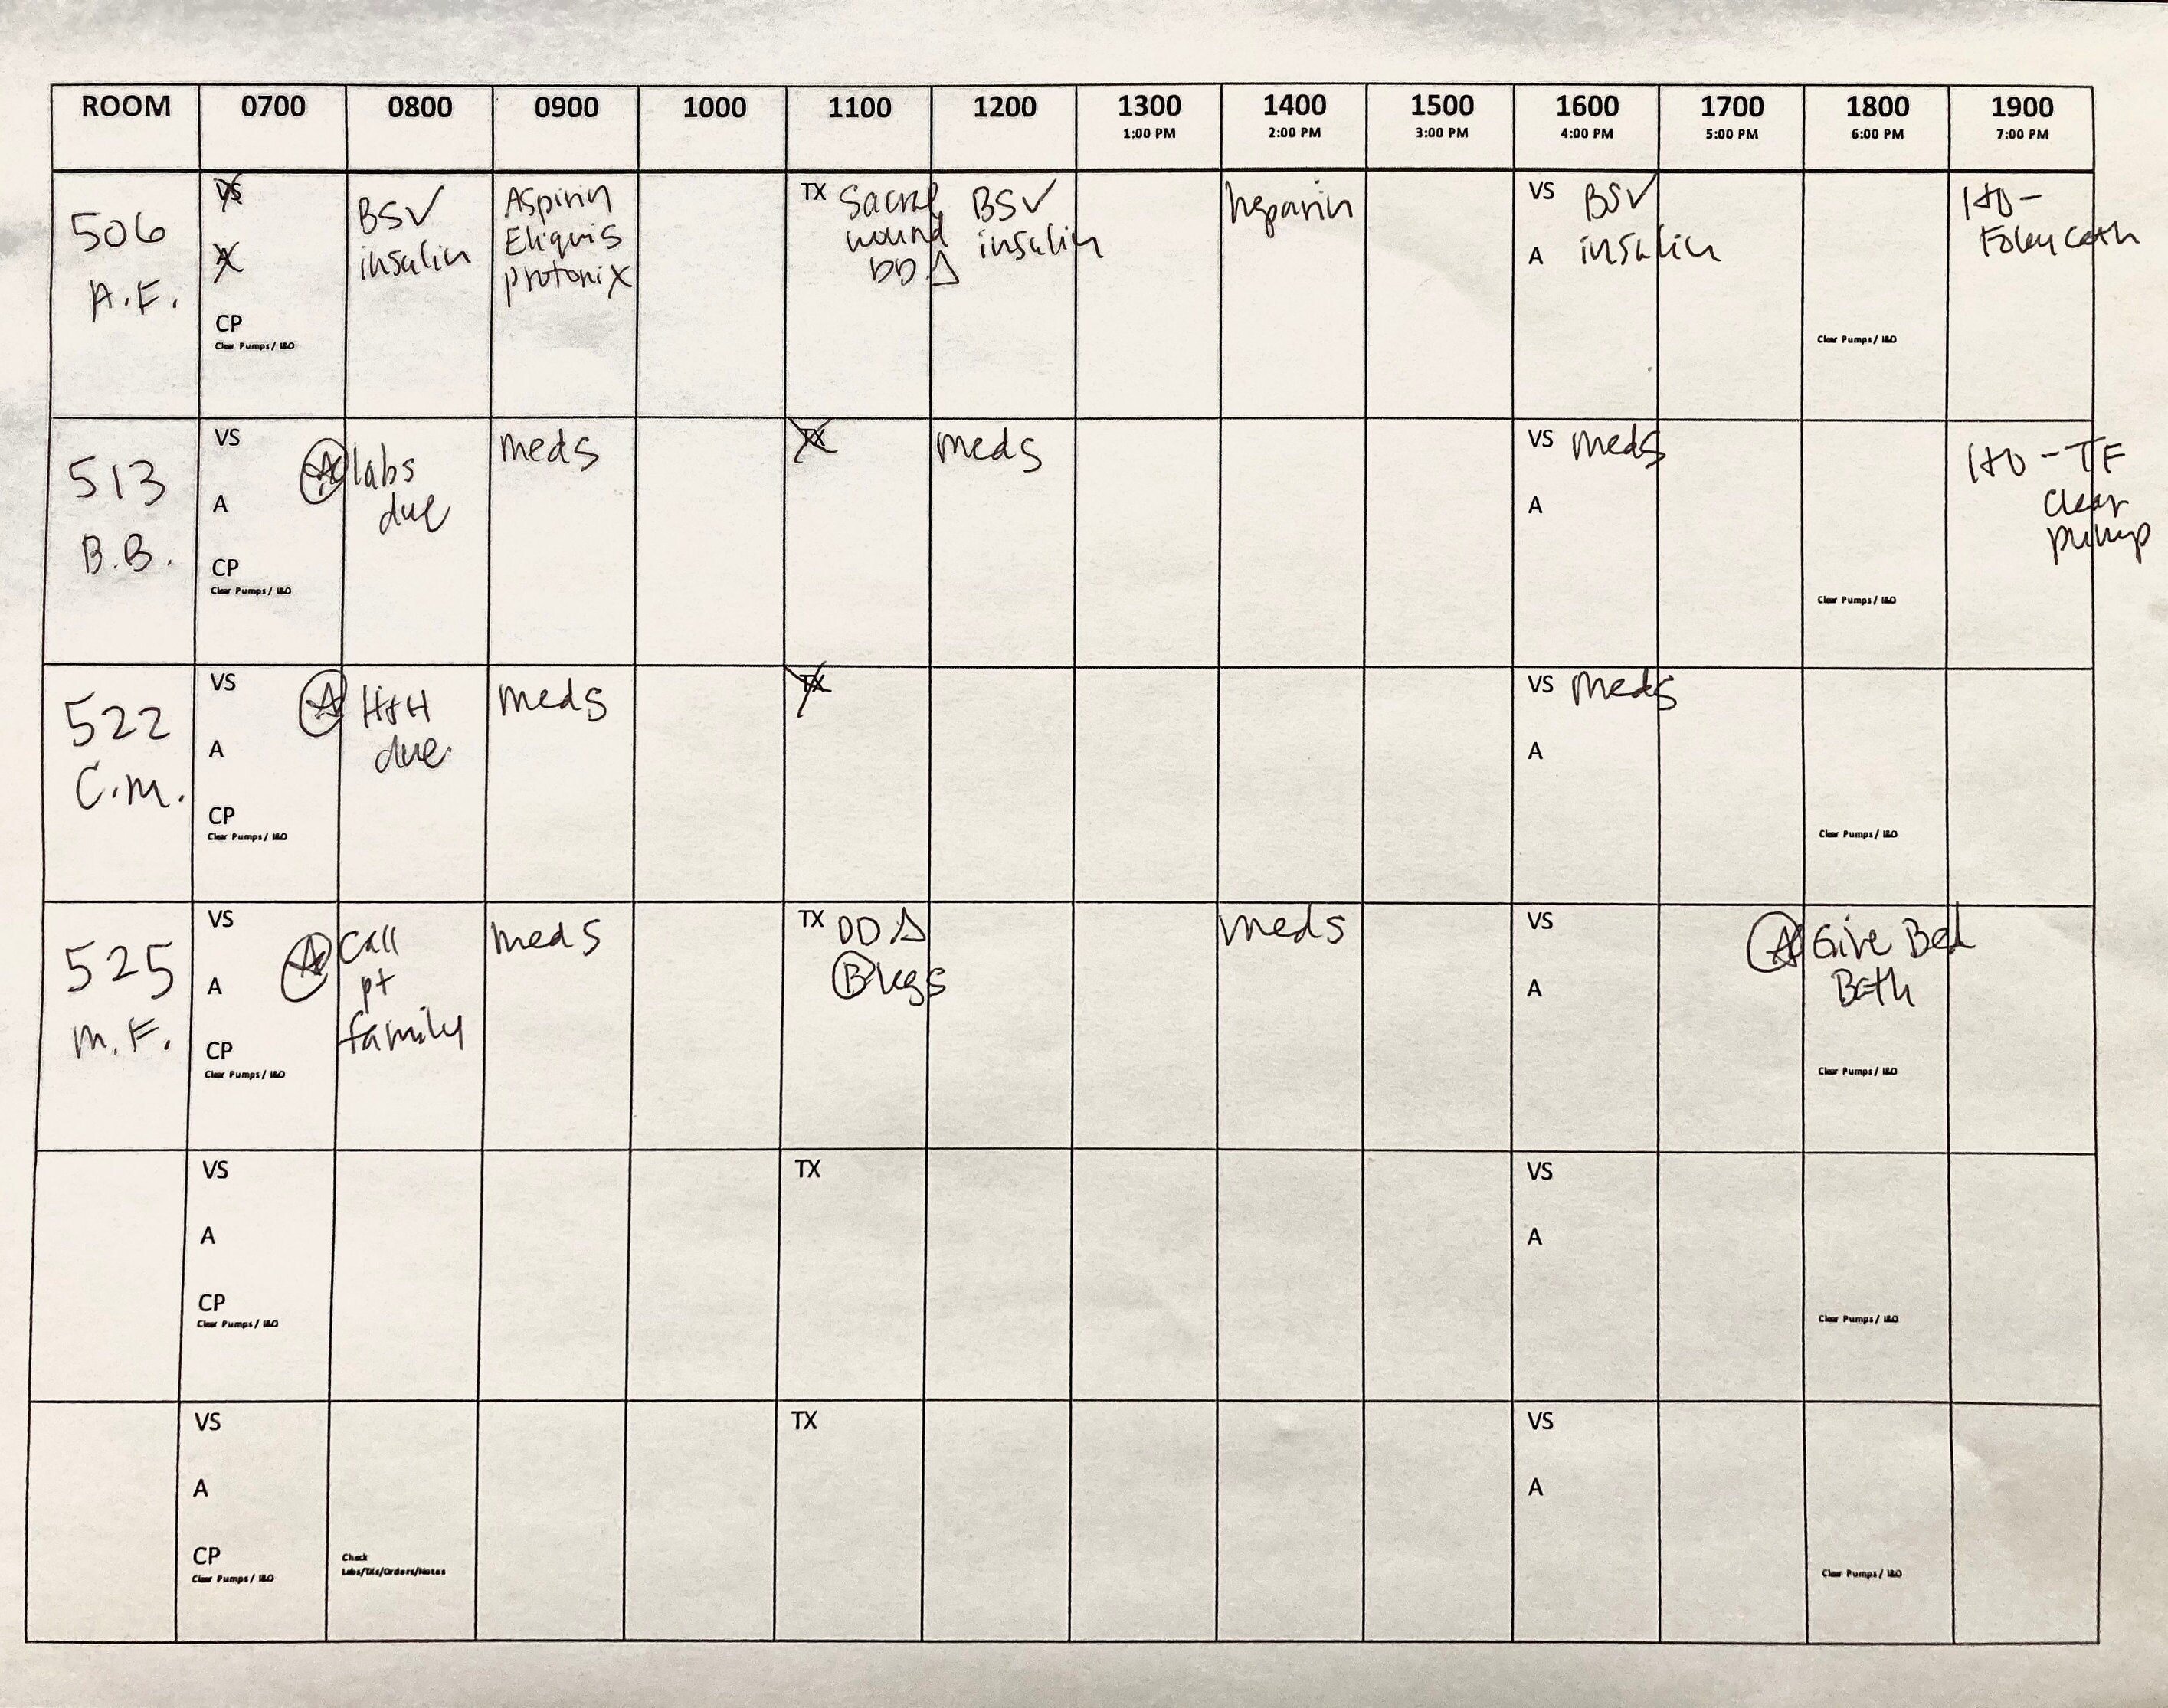 ROOM 0700 0800 0900 1000 1100 1200 1300 1400 1500 1600 1700 1800 1900
1:00 PM 2:00 PM 3:00 PM 4:00 PM 5:00 PM 6:00 PM 7:00 PM
506
A.F.
VS
A
CP
Clear Pumps / I&O
BS✓
insulin
Aspirin
Eliquis
protonix
TX Sacral
wound
DD △
BS✓
insulin
heparin
VS BS✓
A insulin
Clear Pumps / I&O
I+O -
Foley cath
513
B.B.
VS
A
CP
Clear Pumps / I&O
labs
due
meds
TX
meds
VS meds
A
Clear Pumps / I&O
I+O - TF
clear
pump
522
C.M.
VS
A
CP
Clear Pumps / I&O
H+H
due
meds
TX
VS meds
A
Clear Pumps / I&O
525
M.F.
VS
A
CP
Clear Pumps / I&O
call
pt
family
meds
TX DD △
Ⓑ legs
meds
VS
A
Give Bed
Bath
Clear Pumps / I&O
VS
A
CP
Clear Pumps / I&O
TX
VS
A
Clear Pumps / I&O
VS
A
CP
Clear Pumps / I&O
Check
Labs/TXs/Orders/Notes
TX
VS
A
Clear Pumps / I&O